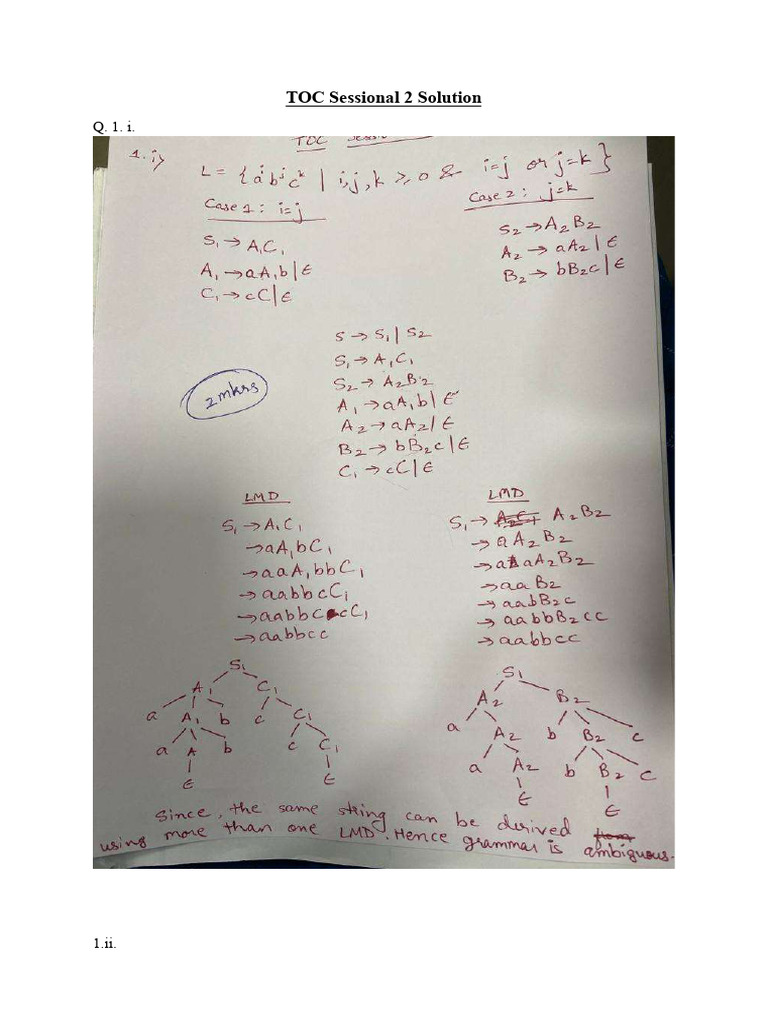 TOC Sessional 2 Solution
Q. 1. i.
TOC Sessi
1. i)
L = {aⁱbʲcᵏ | i,j,k ≥ 0 & i=j or j=k}
Case 1: i=j
Case 2: j=k
S₁ → A₁C₁
A₁ → aA₁b | ∈
C₁ → cC | ∈
S₂ → A₂B₂
A₂ → aA₂ | ∈
B₂ → bB₂c | ∈
2 mkrs
S → S₁ | S₂
S₁ → A₁C₁
S₂ → A₂B₂
A₁ → aA₁b | ∈
A₂ → aA₂ | ∈
B₂ → bB₂c | ∈
C₁ → cC | ∈
LMD
S₁ → A₁C₁
→ aA₁bC₁
→ aaA₁bbC₁
→ aabbcC₁
→ aabbccC₁
→ aabbcc
LMD
S₁ → A₂B₂
→ aA₂B₂
→ aaA₂B₂
→ aaB₂
→ aabB₂c
→ aabbB₂cc
→ aabbcc
S₁
A₁ C₁
a A₁ b c C₁
a A b c C₁
∈ ∈
S₁
A₂ B₂
a A₂ b B₂ c
a A₂ b B₂ c
∈ ∈
Since, the same string can be derived
using more than one LMD. Hence grammar is ambiguous.
1.ii.